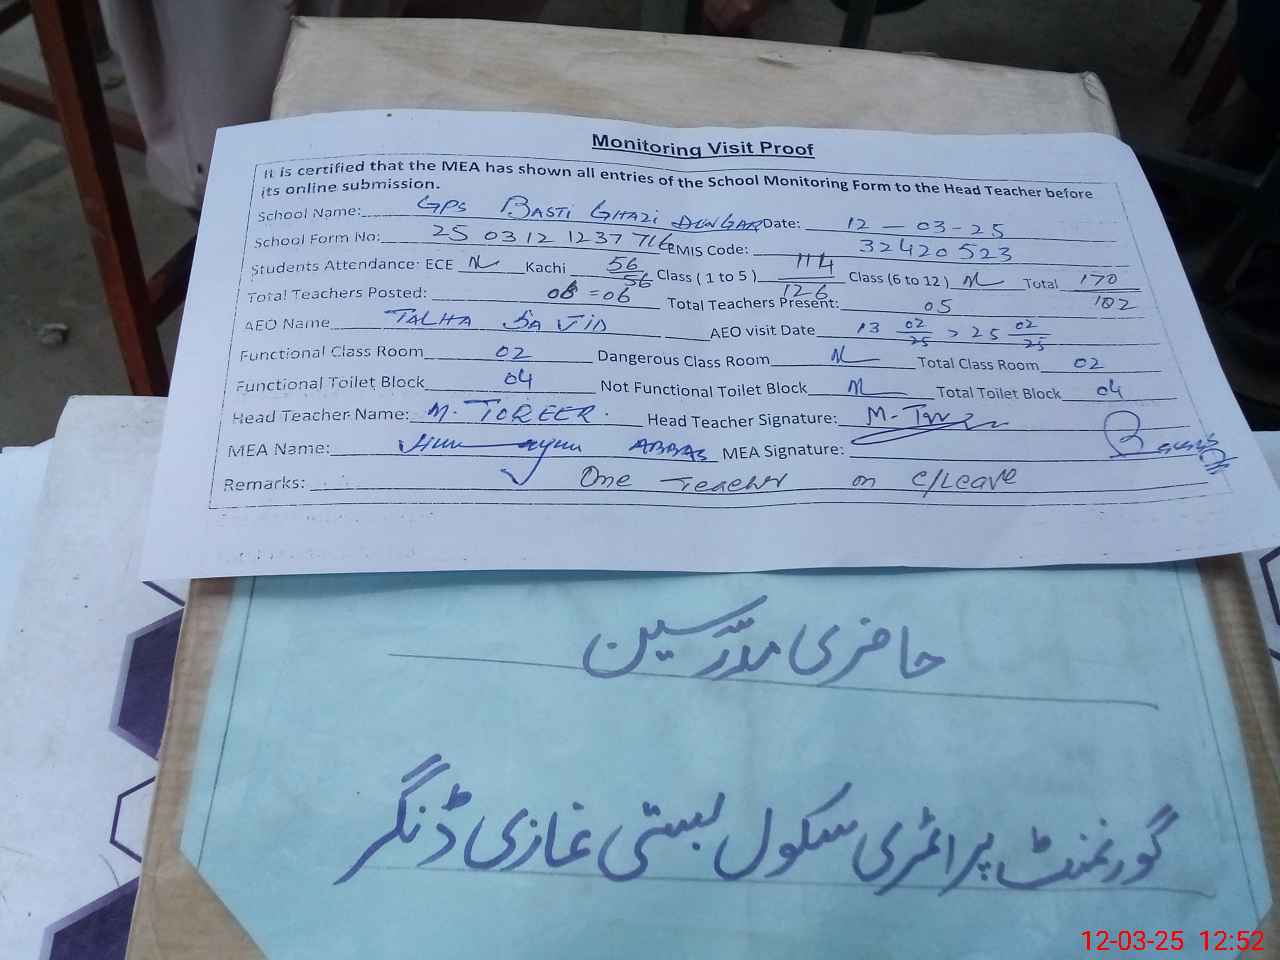 Monitoring Visit Proof
It is certified that the MEA has shown all entries of the School Monitoring Form to the Head Teacher before
its online submission.
School Name: GPS BASTI GHAZI DUNGAR Date: 12 - 03 - 25
School Form No: 25 0312 1237 716 EMIS Code: 32420523
Students Attendance: ECE N Kachi 56/56 Class ( 1 to 5 ) 114/126 Class (6 to 12 ) N Total 170/182
Total Teachers Posted: 06 = 06 Total Teachers Present: 05
AEO Name TALHA JAVID AEO visit Date 13 02/25 > 25 02/25
Functional Class Room 02 Dangerous Class Room N Total Class Room 02
Functional Toilet Block 04 Not Functional Toilet Block N Total Toilet Block 04
Head Teacher Name: M. TOREER. Head Teacher Signature:
MEA Name: ABBAS MEA Signature:
Remarks: One Teacher on C/Leave
حاضری مدّرسین
گورنمنٹ پرائمری سکول بستی غازی ڈنگر
12-03-25 12:52